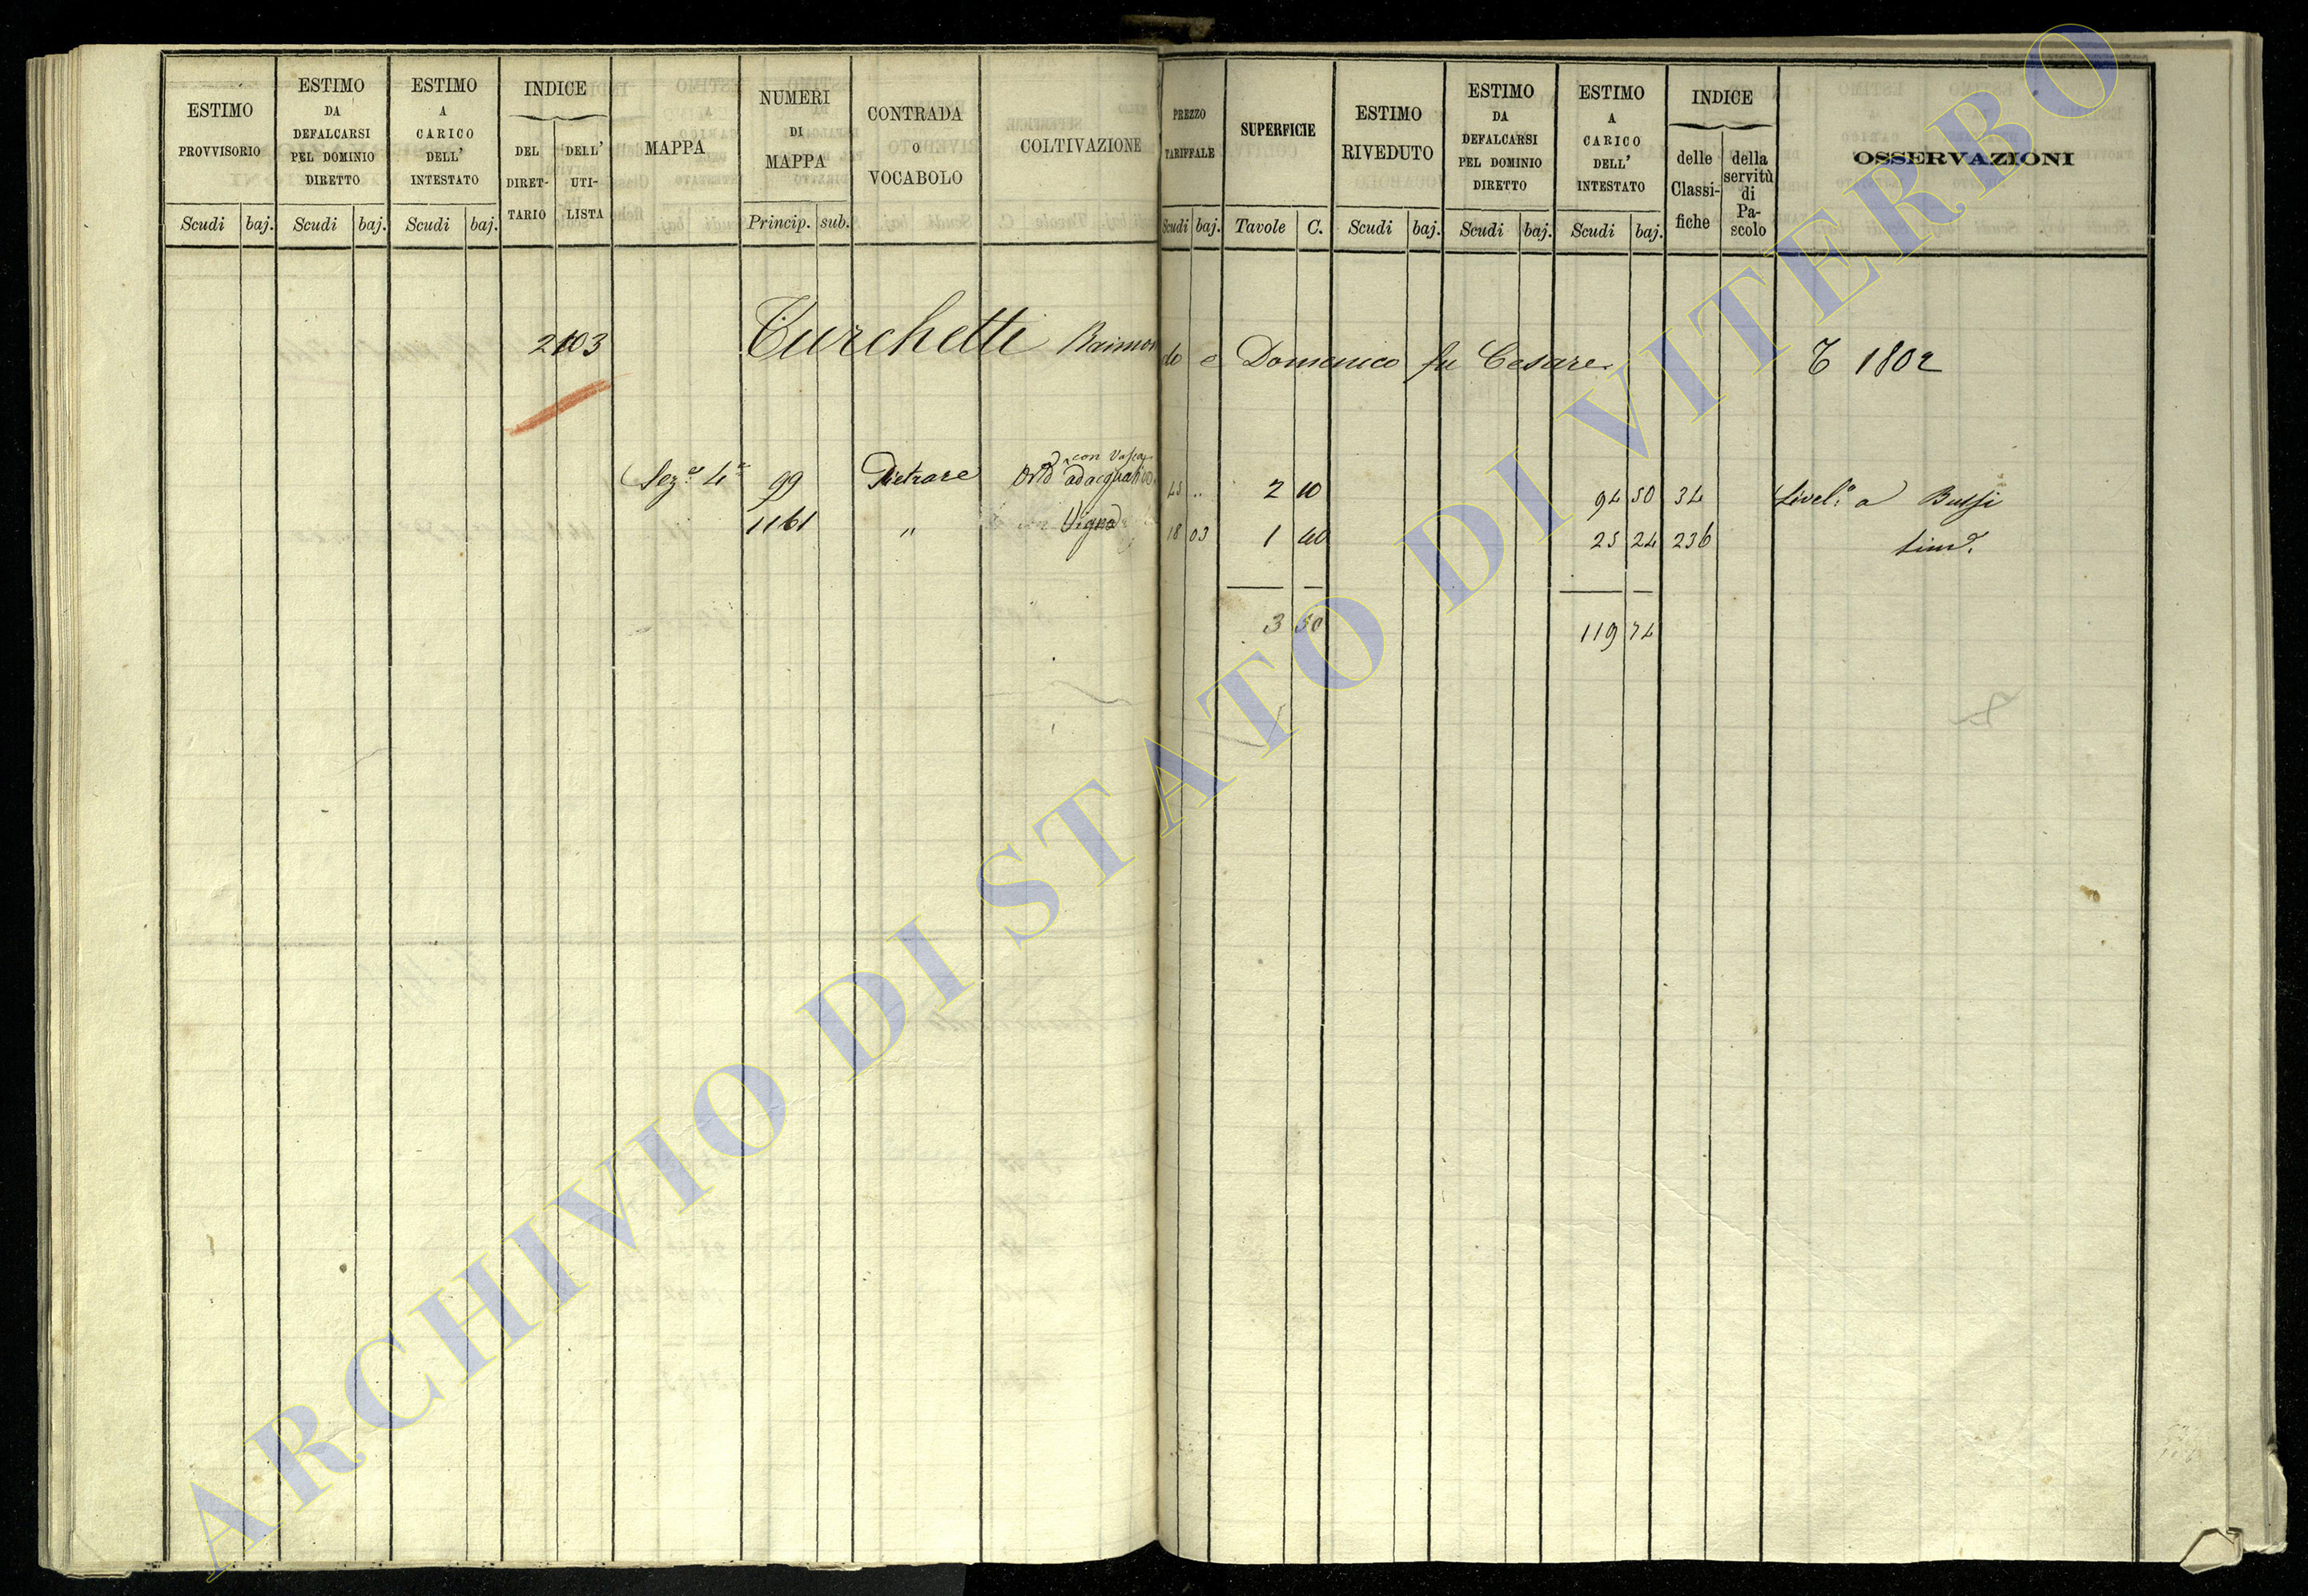 ESTIMO PROVVISORIO
ESTIMO DA DEFALCARSI PEL DOMINIO DIRETTO
ESTIMO A CARICO DELL' INTESTATO
INDICE
DEL DIRET-TARIO
DELL' UTI-LISTA
MAPPA
NUMERI DI MAPPA
CONTRADA O VOCABOLO
COLTIVAZIONE
PREZZO TARIFFALE
SUPERFICIE
ESTIMO RIVEDUTO
ESTIMO DA DEFALCARSI PEL DOMINIO DIRETTO
ESTIMO A CARICO DELL' INTESTATO
INDICE
delle Classi-fiche
della servitù di Pa-scolo
OSSERVAZIONI
Scudi baj. Scudi baj. Scudi baj. Princip. sub. Scudi baj. Tavole C. Scudi baj. Scudi baj. Scudi baj.
2103 Turchetti Raimondo e Domenico fu Cesare T 1802
con Vasca
Sez.e 4a 99 Pietrare Orto adacquativo 45 .. 2 10 94 50 34 Livel.o a Bussi
1161 " Vigna 18 03 1 40 25 24 236 Sim.e
3 50 119 74
ARCHIVIO DI STATO DI VITERBO